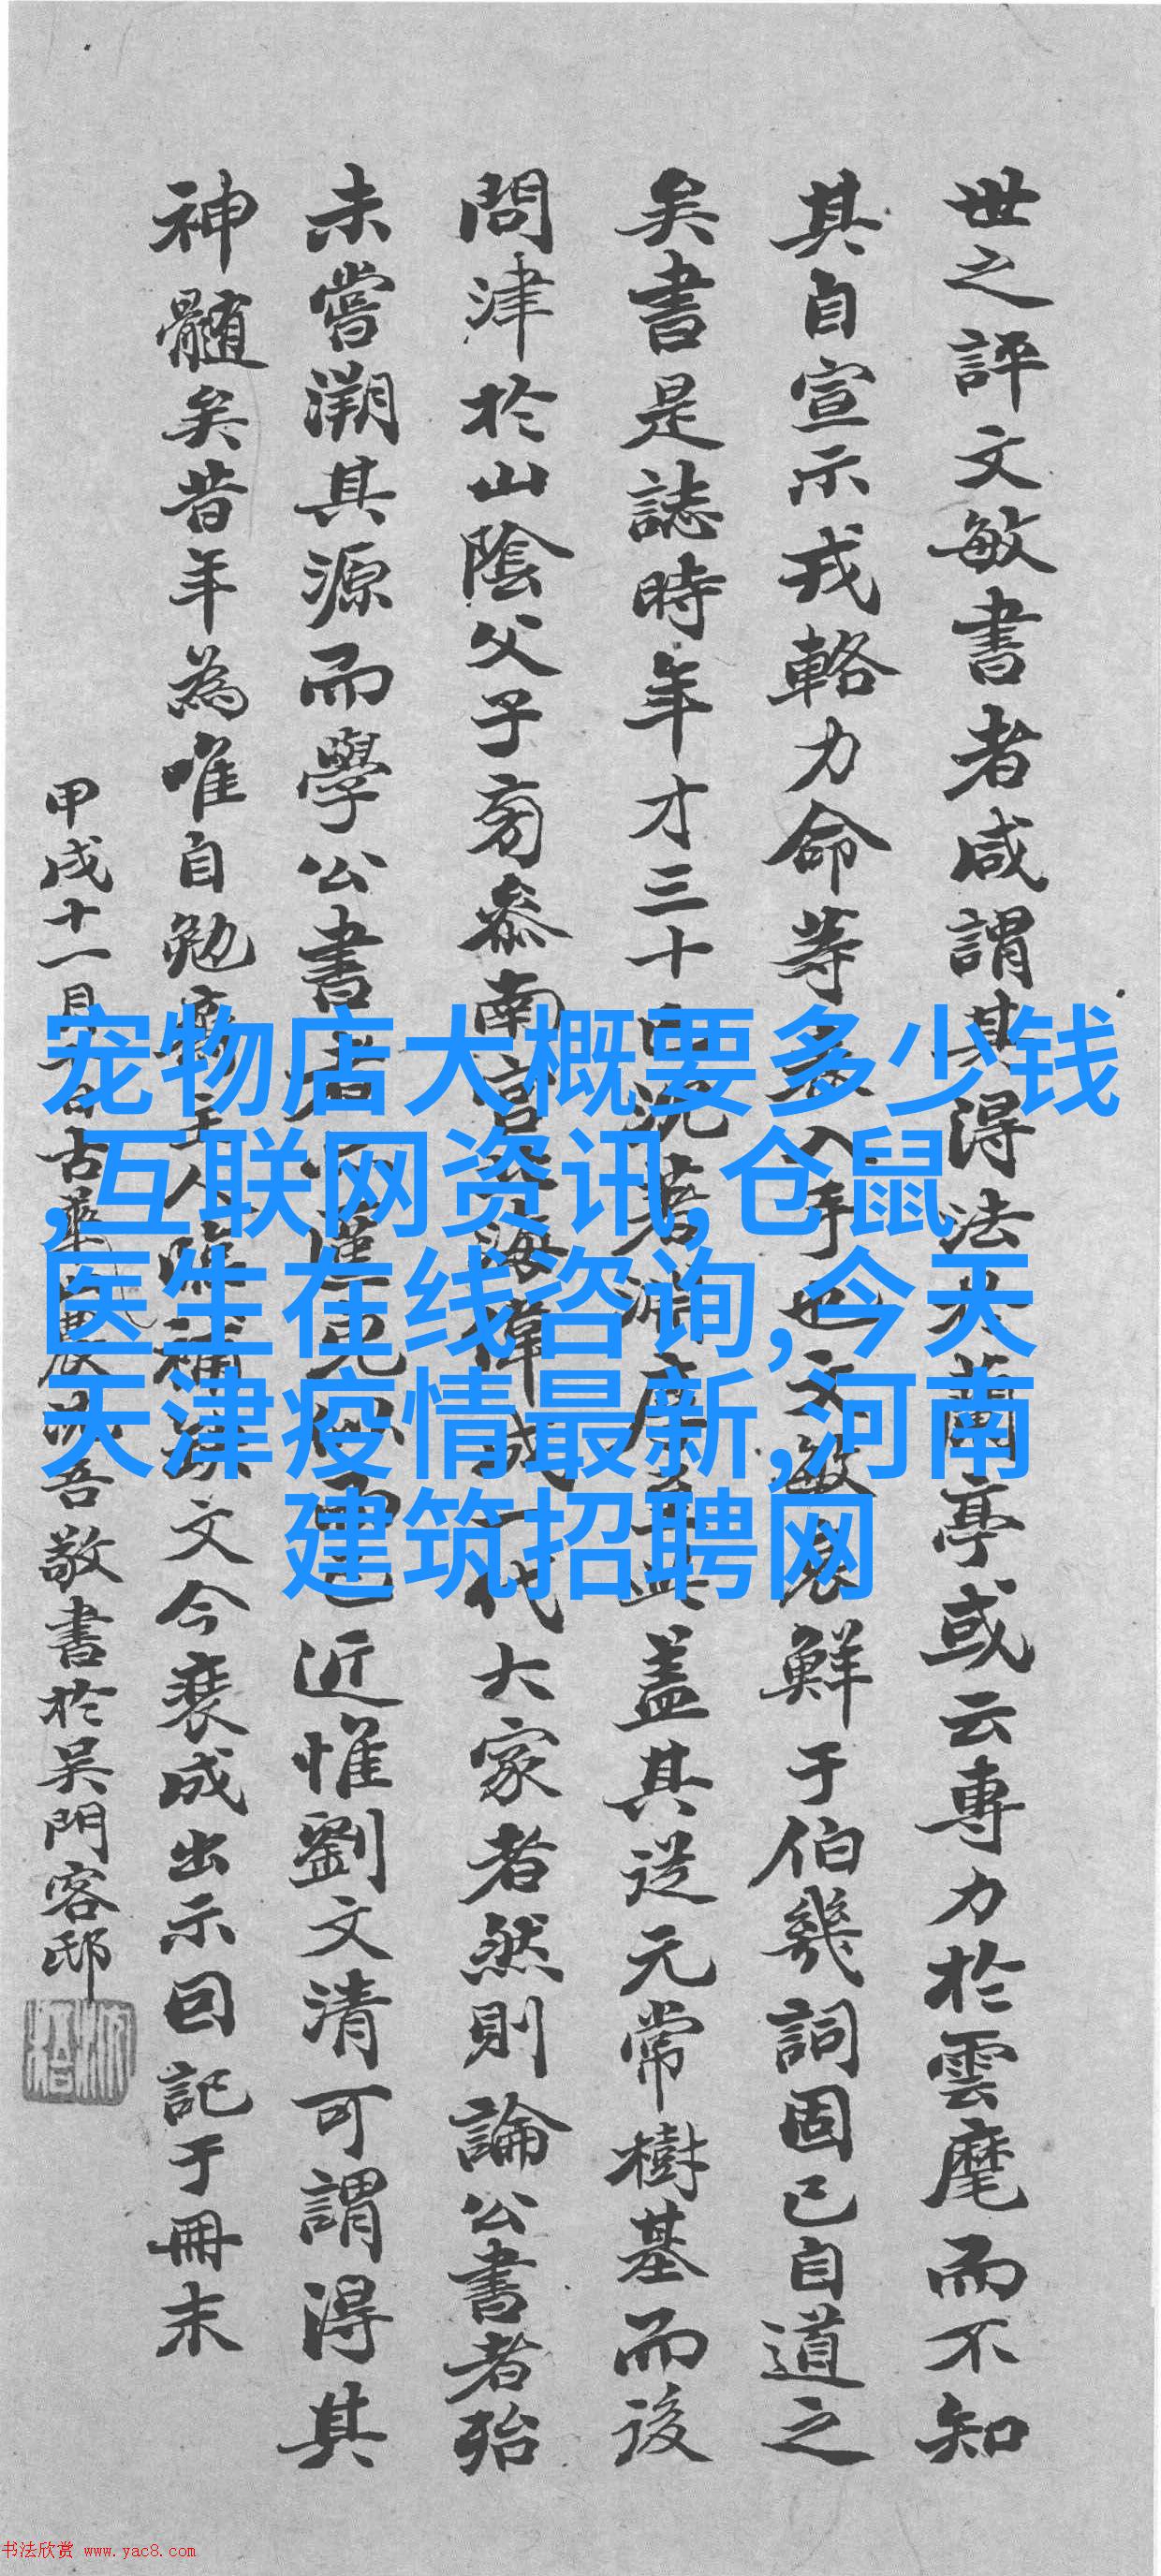 世之評文敏書者咸謂其得法於蘭亭或云專力於雲麾而不知
其自宣示戎輅力命等入手也文敏鮮于伯幾詞固已自道之
矣書是誌時年才三十蓋其從元常樹基而後
問津於山陰父子旁參南宮海成一代大家者然則論公書者殆
未嘗溯其源而學公書者近惟劉文清可謂得其
神髓矣昔年為唯自勉主人臨補文今裝成出示回記于冊末
甲戌十一月古華吾敬書於吳門客邸
宠物店大概要多少钱
,互联网资讯,仓鼠
医生在线咨询,今天
天津疫情最新,河南
建筑招聘网
书法欣赏 www.yac8.com